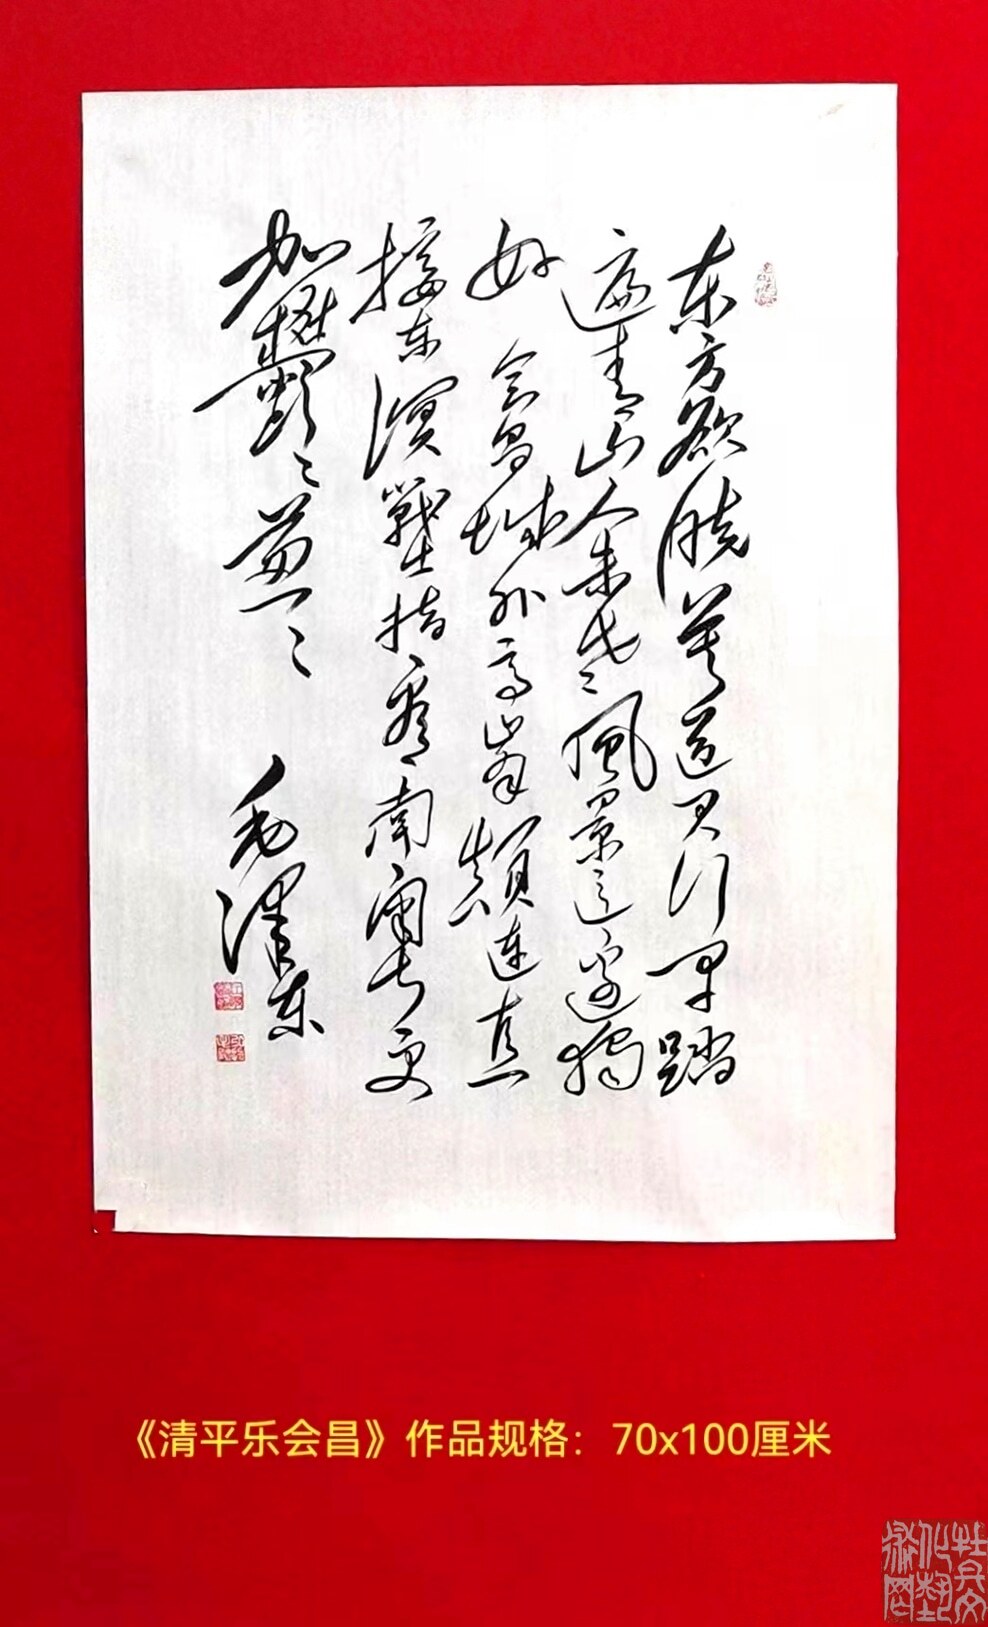 东方欲晓莫道君行早踏
遍青山人未老〻风景这边独
好 会昌城外高峰颠连直
接东溟战士指看南粤更
加郁郁〻葱〻
毛泽东
《清平乐会昌》作品规格：70x100厘米
牡丹文化艺术网